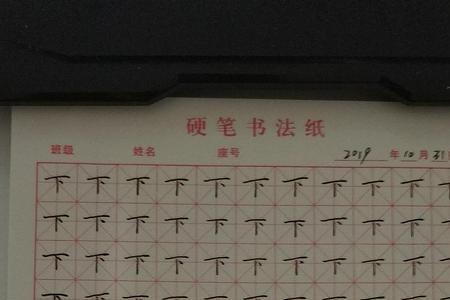 硬笔书法纸
班级 姓名 座号 2019年10月31
下下下下下下下下下下下
下下下下下下下下下下下
下下下下下下下下下下下